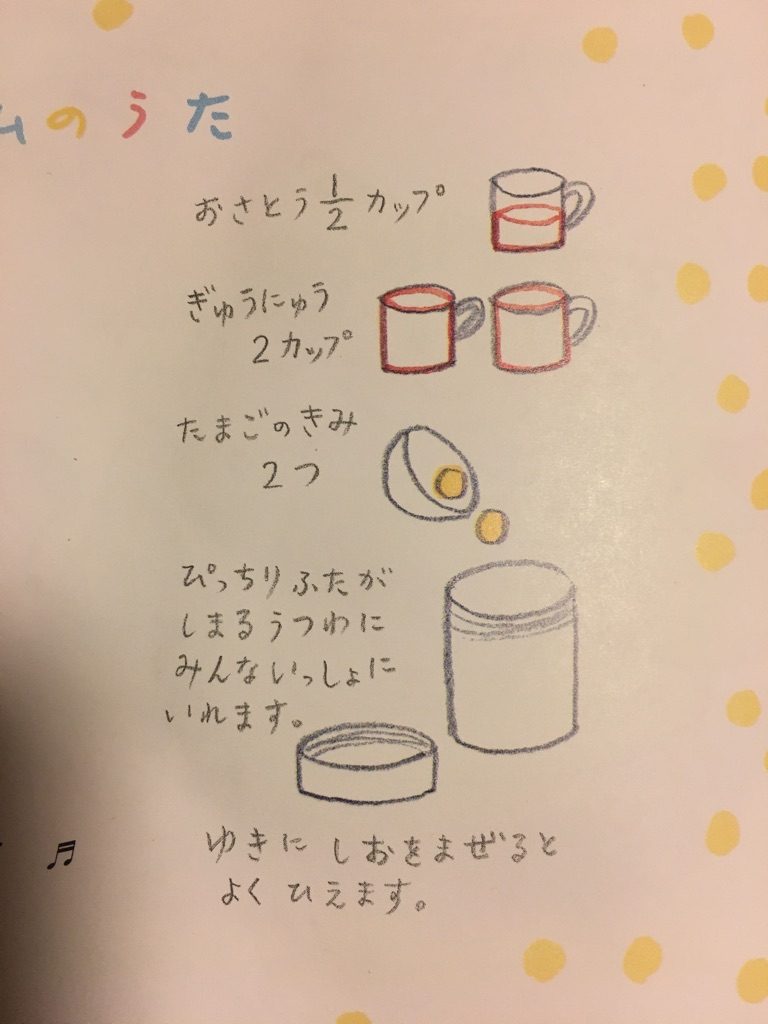 ムのうた
おさとう1/2カップ
ぎゅうにゅう
2カップ
たまごのきみ
2つ
ぴっちりふたが
しまるうつわに
みんないっしょに
いれます。
ゆきにしおをまぜると
よくひえます。